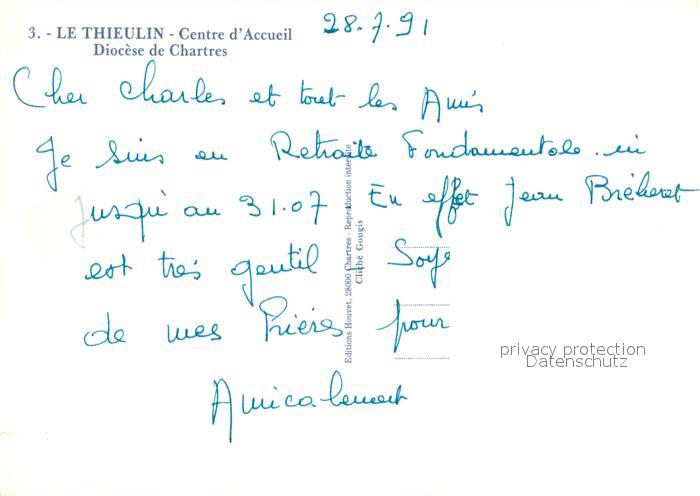 3. - LE THIEULIN - Centre d'Accueil
Diocèse de Chartres
28.7.91
Cher Charles et tout les Amis
Je suis en Retraite Fondamentale ici
Jusqu'au 31.07 En effet Jean Bréheret
est très gentil Soye
de mes Prières pour
Amicalement
Editions Houvet, 28000 Chartres - Reproduction interdite
Cliché Gougis
privacy protection
Datenschutz